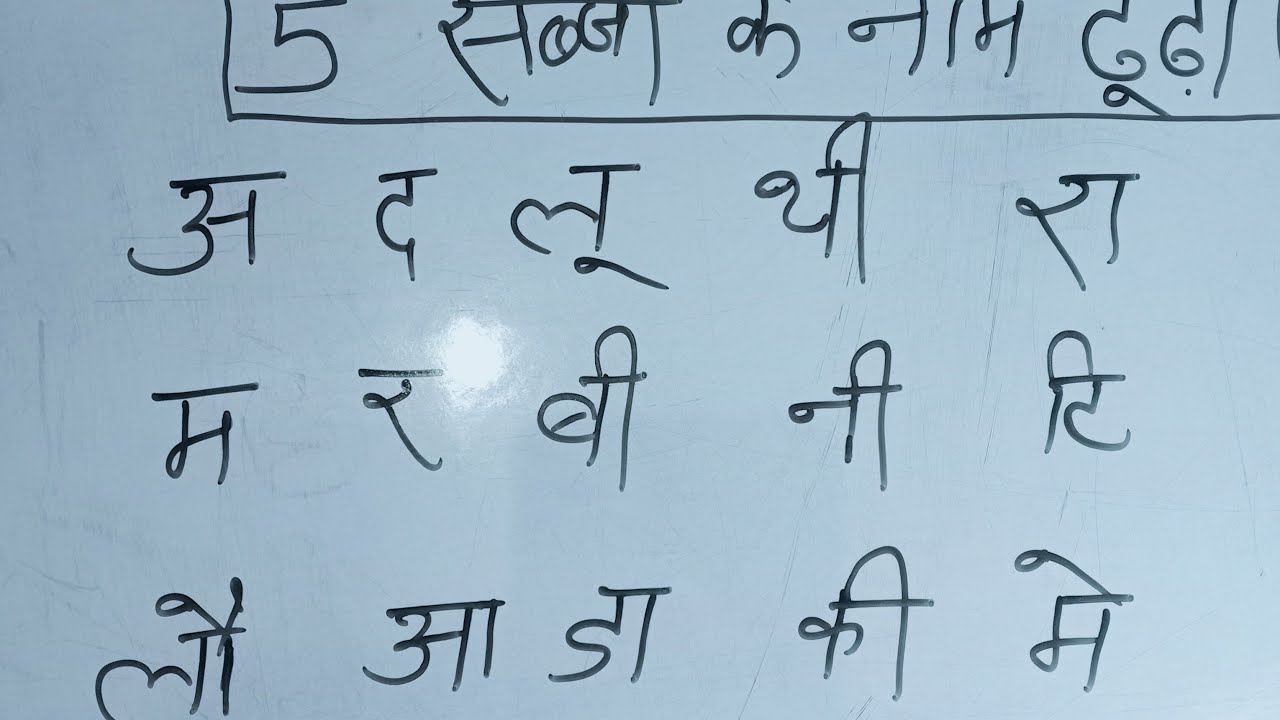 5 सब्जी के नाम ढूढ़ो
अ द लू थी रा
म र बी नी टि
लौ आ डा की मे